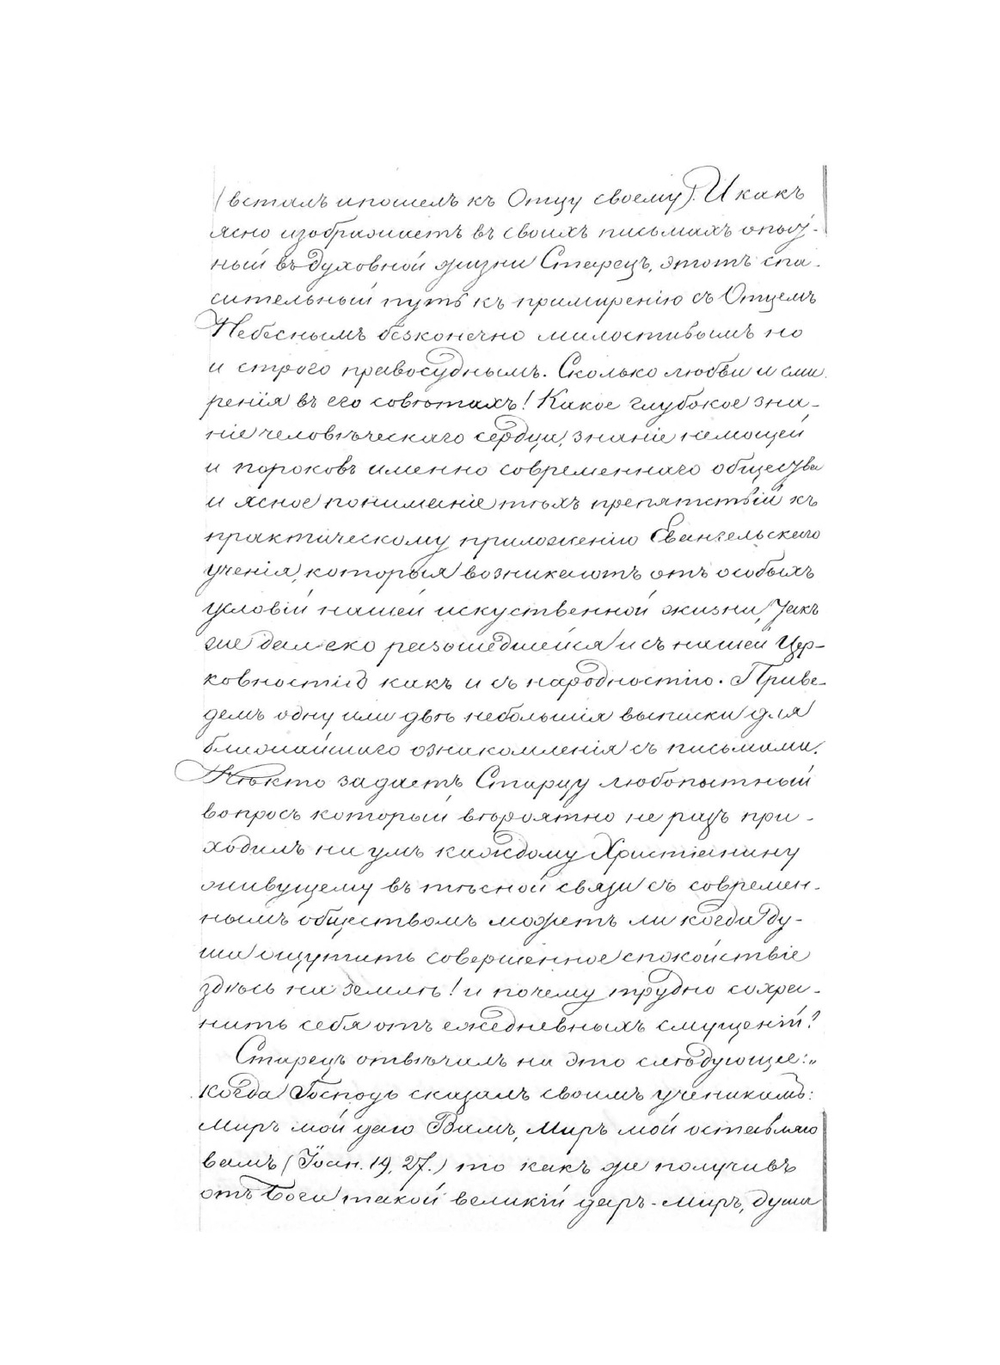 (всталъ и пошелъ къ Отцу своему). И какъ
ясно изображаетъ въ своихъ письмахъ опыт-
ный въ духовной жизни Старецъ, этотъ спа-
сительный путь къ примиренію съ Отцемъ
Небеснымъ безконечно милостивымъ но
и строго правосуднымъ. Сколько любви и сми
ренія въ его совѣтахъ! Какое глубокое зна-
ніе человѣческаго сердца, знаніе немощей
и пороковъ именно современнаго общества
и ясное пониманіе тѣхъ препятствій къ
практическому приложенію Евангельскаго
ученія, которыя возникаютъ отъ особыхъ
условій нашей искуственной жизни, такъ
же далеко разошедшейся и съ нашей Цер-
ковностію какъ и съ народностію. Приве-
демъ одну или двѣ небольшія выписки для
ближайшаго ознакомленія съ письмами.
Нѣкто задаетъ Старцу любопытный
вопросъ который вѣроятно не разъ при-
ходилъ на умъ каждому Христіанину
живущему въ тѣсной связи съ современ-
нымъ обществомъ можетъ ли когда ду-
ша ощутить совершенное спокойствіе
здѣсь на землѣ! и почему трудно сохра-
нить себя отъ ежедневныхъ смущеній?
Старецъ отвѣчалъ на это слѣдующее: „
Когда Господь сказалъ своимъ ученикамъ:
Миръ мой даю Вамъ, Миръ мой оставляю
вамъ (Іоан. 14, 27.) то какъ же получивъ
отъ Бога такой великій даръ - миръ, душа